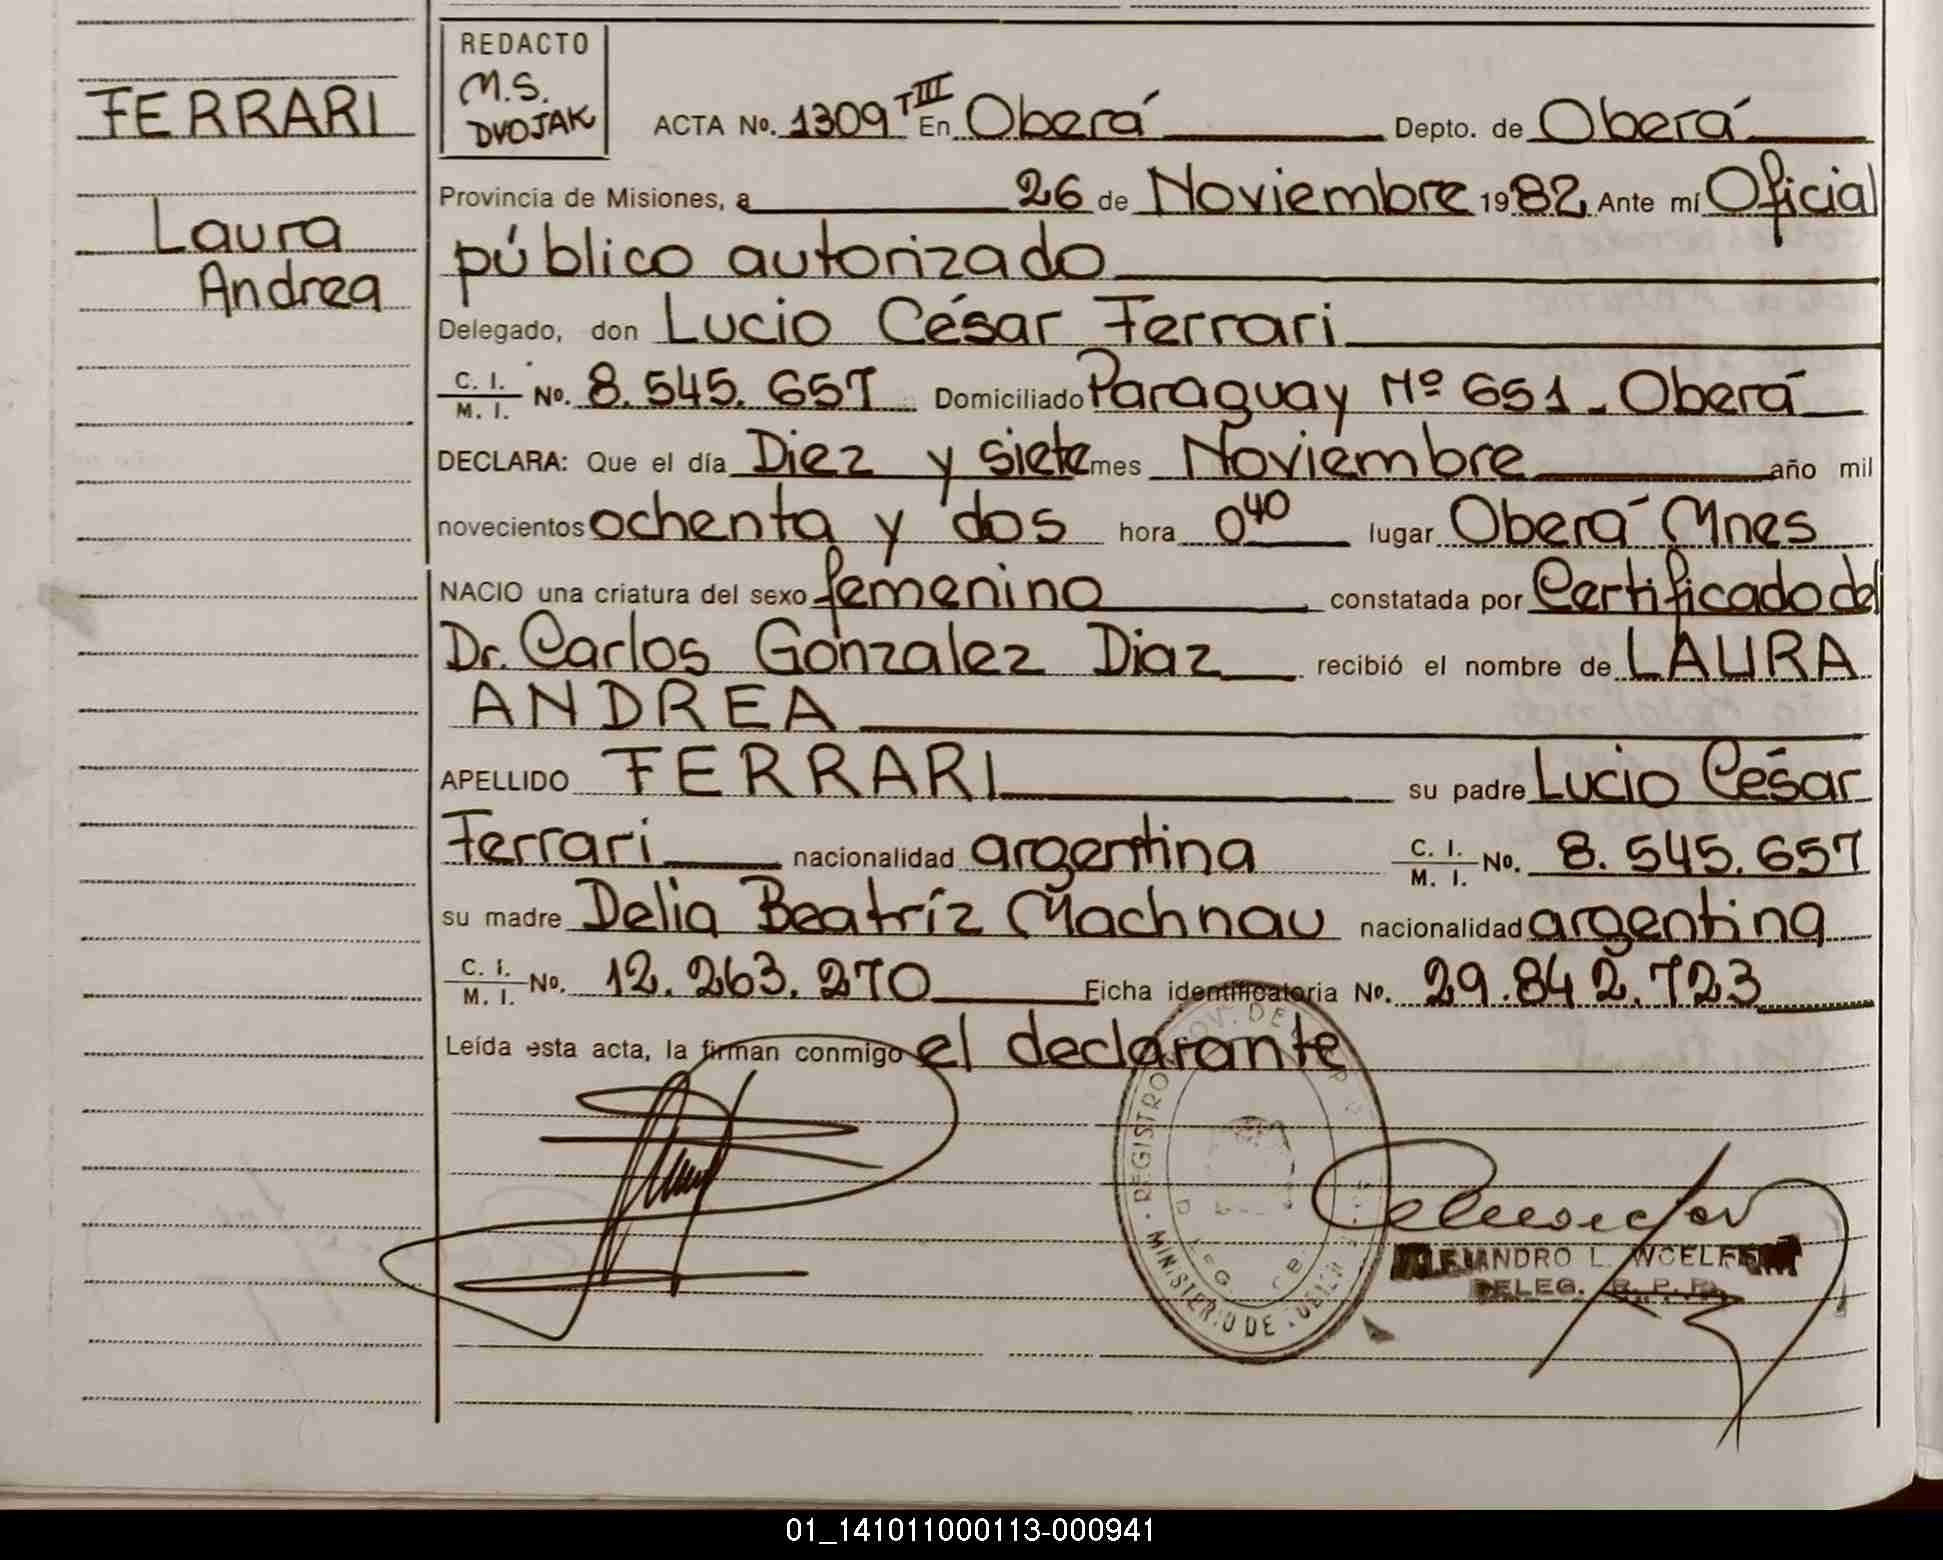 FERRARI
Laura
Andrea
REDACTO
M.S.
DVOJAK
ACTA No. 1309 TIII En Oberá Depto. de Oberá
Provincia de Misiones, a 26 de Noviembre 1982 Ante mí Oficial
público autorizado
Delegado, don Lucio César Ferrari
C. I. / M. I. No. 8.545.657 Domiciliado Paraguay Nº 651 - Oberá
DECLARA: Que el día Diez y siete mes Noviembre año mil
novecientos ochenta y dos hora 0 40 lugar Oberá Mnes
NACIO una criatura del sexo femenino constatada por Certificado del
Dr. Carlos Gonzalez Diaz recibió el nombre de LAURA
ANDREA
APELLIDO FERRARI su padre Lucio César
Ferrari nacionalidad argentina C. I. / M. I. No. 8.545.657
su madre Delia Beatríz Machnau nacionalidad argentina
C. I. / M. I. No. 12.263.270 Ficha identificatoria No. 29.842.723
Leída esta acta, la firman conmigo el declarante
REGISTRO
MINISTERIO DE
ALEJANDRO L.
DELEG. R. P. P.
01_141011000113-000941